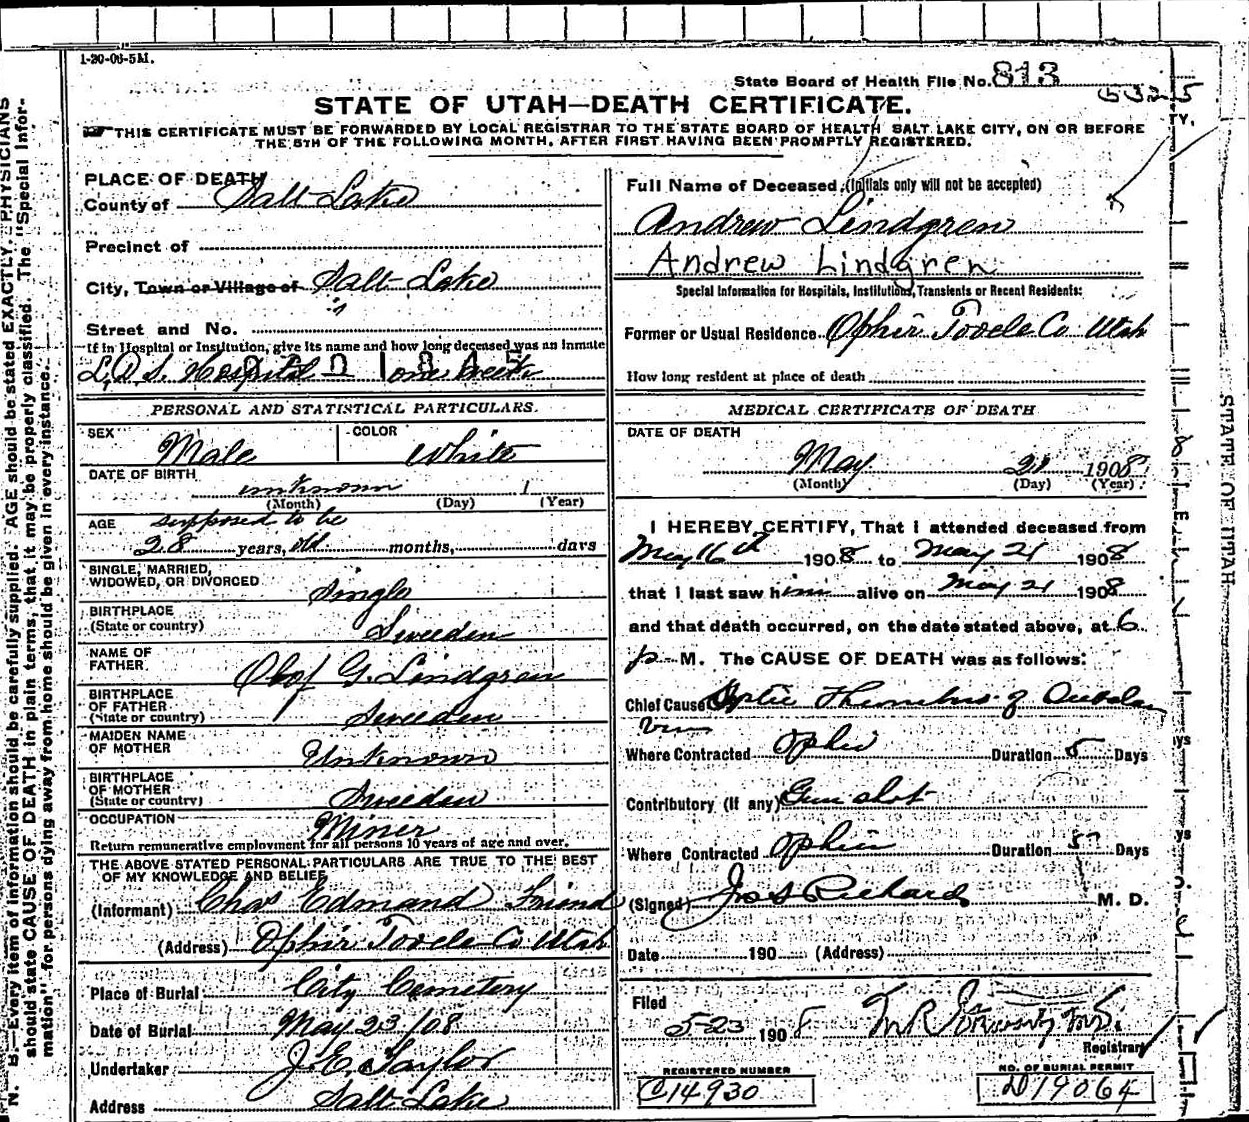 1-20-06-5M.
State Board of Health File No. 813
5325
STATE OF UTAH—DEATH CERTIFICATE.
THIS CERTIFICATE MUST BE FORWARDED BY LOCAL REGISTRAR TO THE STATE BOARD OF HEALTH SALT LAKE CITY, ON OR BEFORE
THE 5TH OF THE FOLLOWING MONTH, AFTER FIRST HAVING BEEN PROMPTLY REGISTERED.
PLACE OF DEATH
County of Salt Lake
Precinct of
City, Town or Village of Salt Lake
Street and No.
If in Hospital or Institution, give its name and how long deceased was an inmate
L.D.S. Hospital one week
PERSONAL AND STATISTICAL PARTICULARS.
SEX Male COLOR White
DATE OF BIRTH unknown 1
(Month) (Day) (Year)
AGE supposed to be
28 years, old months, days
SINGLE, MARRIED,
WIDOWED, OR DIVORCED Single
BIRTHPLACE
(State or country) Sweeden
NAME OF
FATHER Olof G. Lindgren
BIRTHPLACE
OF FATHER
(State or country) Sweeden
MAIDEN NAME
OF MOTHER Unknown
BIRTHPLACE
OF MOTHER
(State or country) Sweeden
OCCUPATION Miner
Return remunerative employment for all persons 10 years of age and over.
THE ABOVE STATED PERSONAL PARTICULARS ARE TRUE TO THE BEST
OF MY KNOWLEDGE AND BELIEF
(Informant) Chas Edmand Friend
(Address) Ophir Tooele Co Utah
Place of Burial City Cemetery
Date of Burial May 23/08
Undertaker J. E. Taylor
Address Salt Lake
Full Name of Deceased (Initials only will not be accepted)
Andrew Lindgren
Andrew Lindgren
Special Information for Hospitals, Institutions, Transients or Recent Residents:
Former or Usual Residence Ophir Tooele Co Utah
How long resident at place of death
MEDICAL CERTIFICATE OF DEATH
DATE OF DEATH
May 21 1908
(Month) (Day) (Year)
I HEREBY CERTIFY, That I attended deceased from
May 16th 1908 to May 21 1908
that I last saw him alive on May 21 1908
and that death occurred, on the date stated above, at 6
p M. The CAUSE OF DEATH was as follows:
Chief Cause Septic Thrombus of
Where Contracted Ophir Duration 5 Days
Contributory (If any) Gun shot
Where Contracted Ophir Duration 5 Days
(Signed) Jos S Richards M. D.
Date 190 (Address)
Filed
5-23 1908
Registrar
REGISTERED NUMBER
C14930
NO. OF BURIAL PERMIT
D19064
N. B.—Every item of information should be carefully supplied. AGE should be stated EXACTLY. PHYSICIANS
should state CAUSE OF DEATH in plain terms, that it may be properly classified. The "Special Infor-
mation" for persons dying away from home should be given in every instance.
STATE OF UTAH